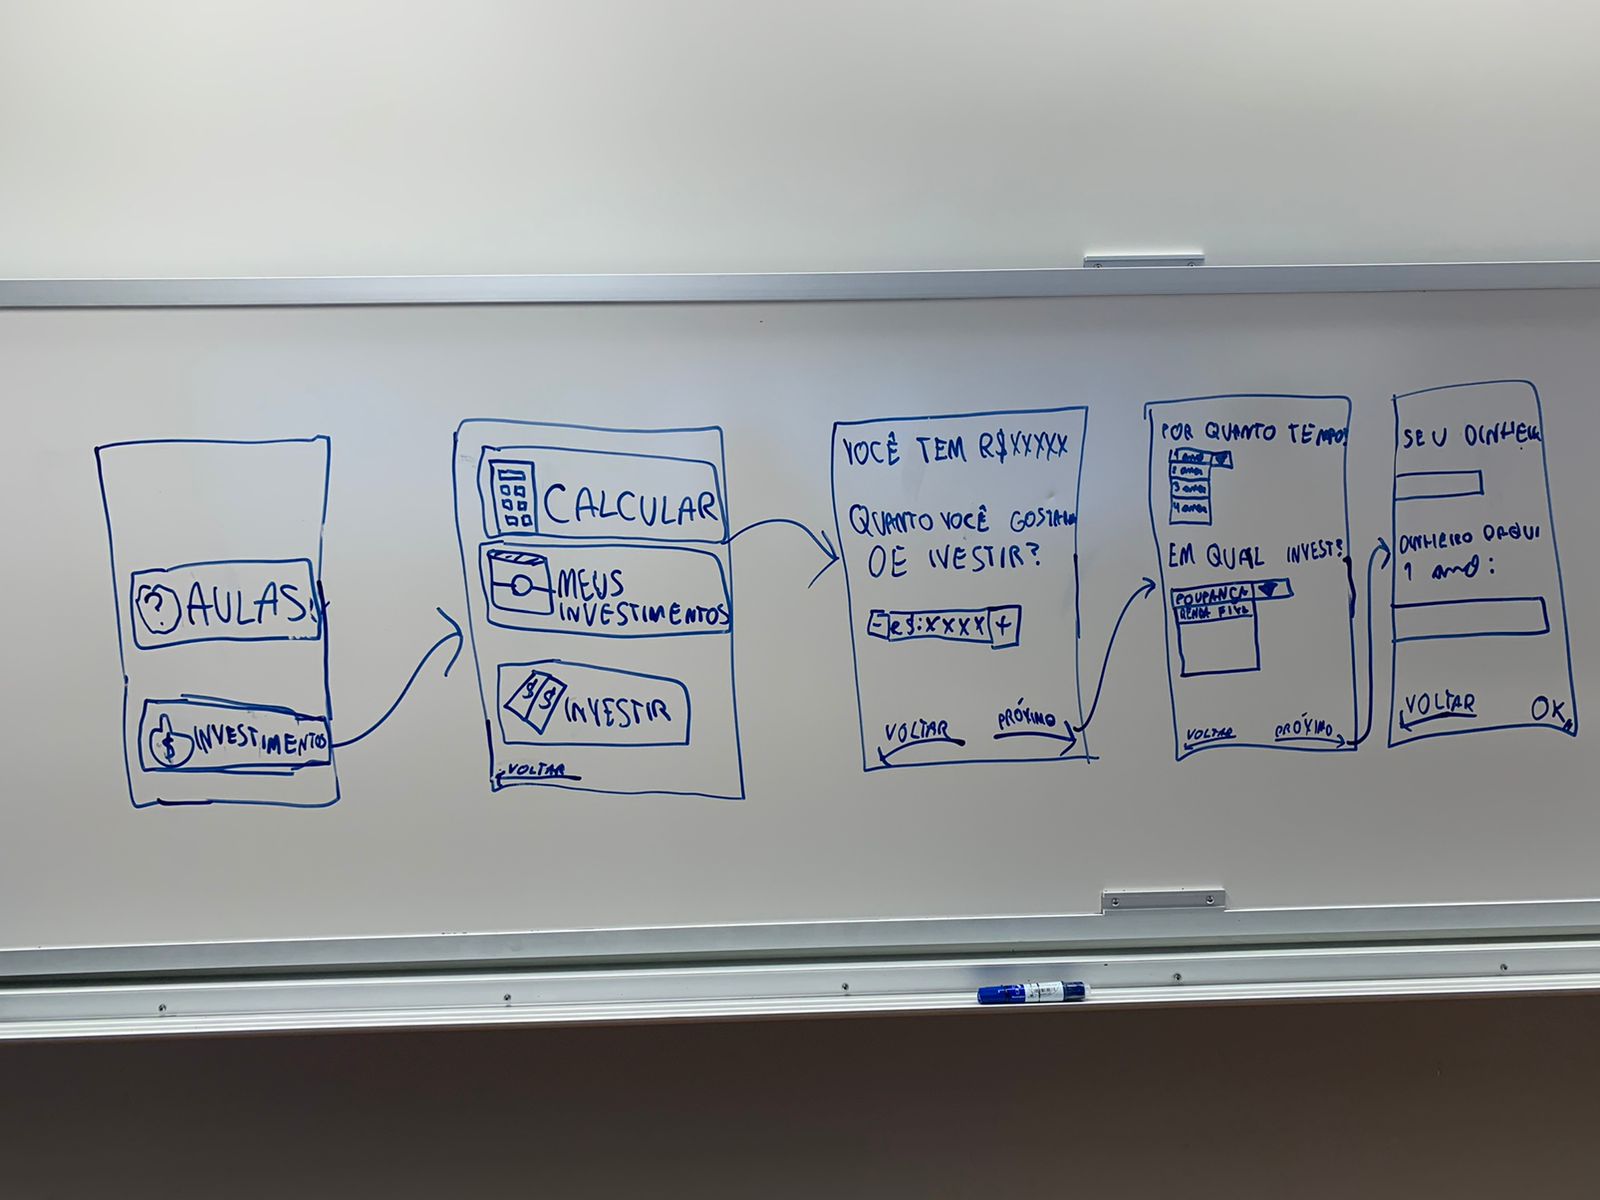 ? AULAS!
$ INVESTIMENTOS
CALCULAR
MEUS
INVESTIMENTOS
$ $ INVESTIR
VOLTAR
VOCÊ TEM R$XXXXX
QUANTO VOCÊ GOSTARIA
DE IVESTIR?
- R$:XXXX +
VOLTAR PRÓXIMO
POR QUANTO TEMPO?
1 ano
2 anos
3 anos
4 anos
EM QUAL INVEST?
POUPANÇA
RENDA FIXA
VOLTAR PRÓXIMO
SEU DINHEIRO
DINHEIRO DAQUI
1 ano:
VOLTAR OK